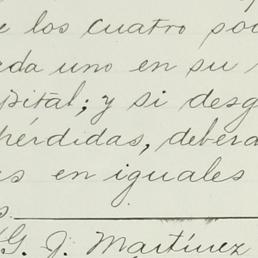 e los cuatro so
da uno en su
pital; y si desg
pérdidas, debera
es en iguales
s.
G. J. Martínez